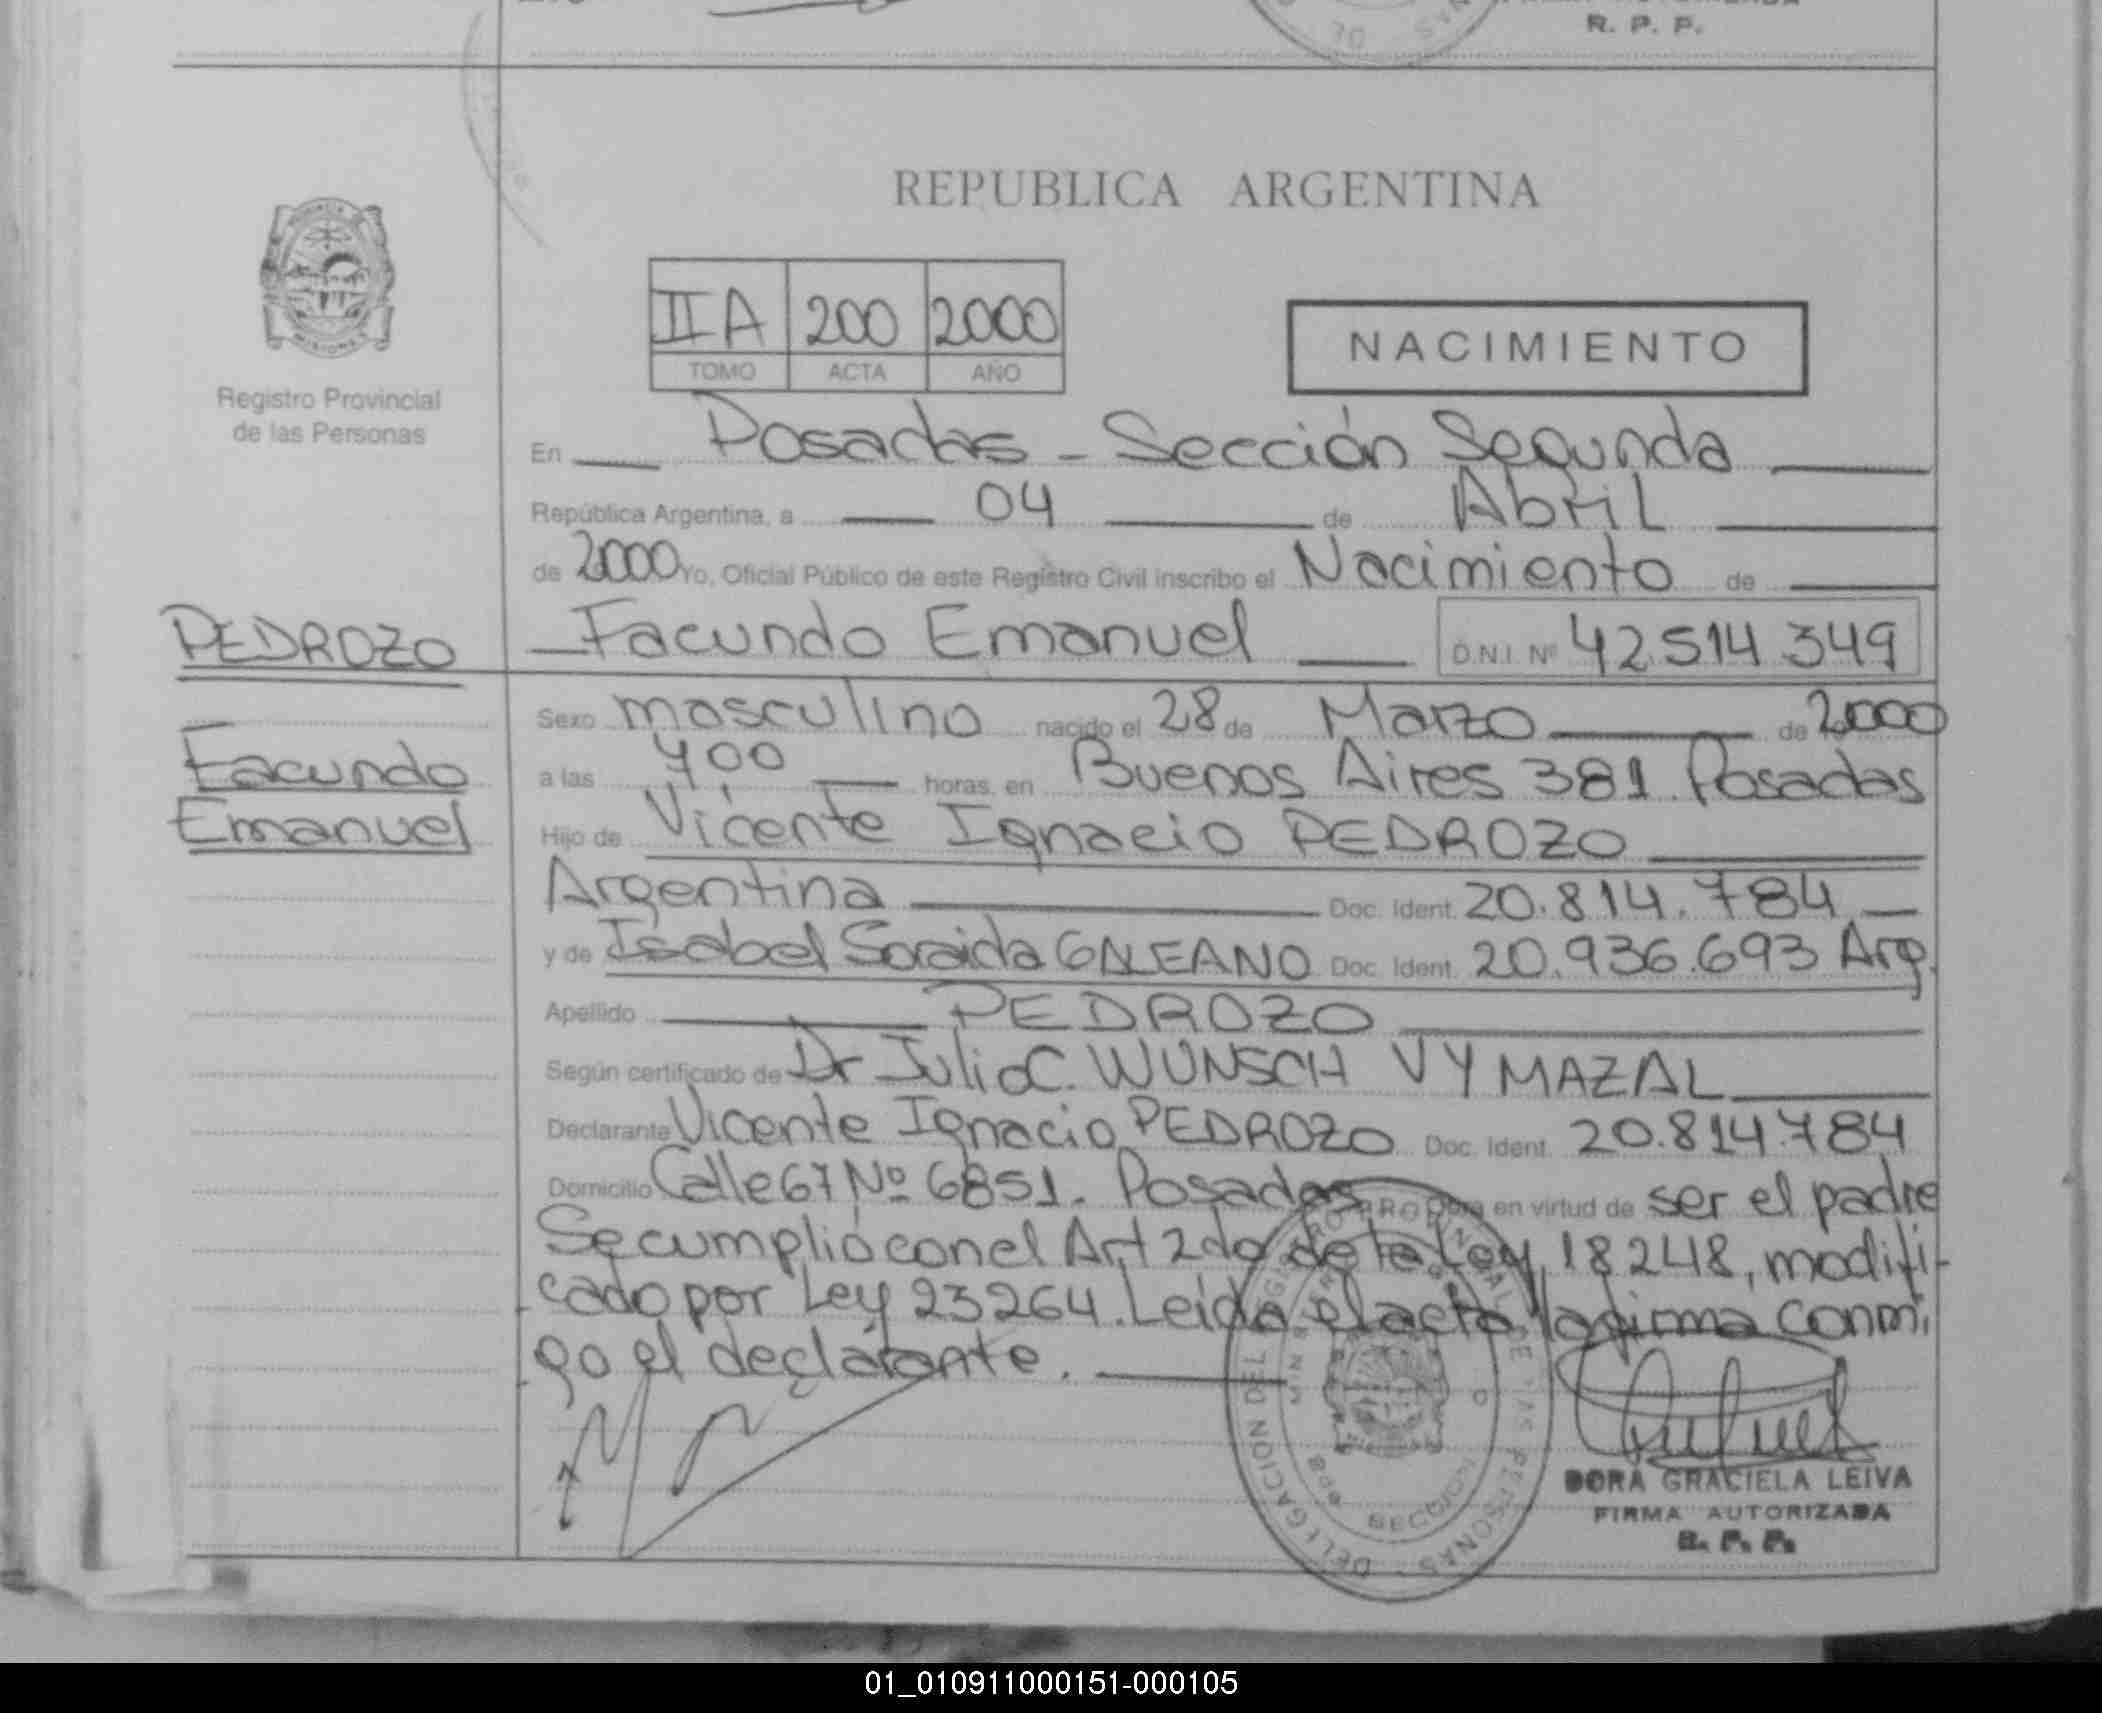 R. P. P.
REPUBLICA ARGENTINA
IIA 200 2000
TOMO ACTA AÑO
NACIMIENTO
MISIONES
Registro Provincial
de las Personas
En Posadas - Sección Segunda
República Argentina, a 04 de Abril
de 2000 Yo, Oficial Público de este Registro Civil inscribo el Nacimiento de
PEDROZO
Facundo Emanuel D.N.I. Nº 42.514.349
Sexo masculino nacido el 28 de Marzo de 2000
Facundo
Emanuel
a las 400 horas, en Buenos Aires 381. Posadas
Hijo de Vicente Ignacio PEDROZO
Argentina Doc. Ident. 20.814.784
y de Isabel Soraida GALEANO Doc. Ident. 20.936.693 Arg.
Apellido PEDROZO
Según certificado de Dr Julio C. WUNSCH VYMAZAL
Declarante Vicente Ignacio PEDROZO Doc. Ident. 20.814.784
Domicilio Calle 67 Nº 6851. Posadas en virtud de ser el padre
Se cumplió con el Art 2do de la Ley 18248, modifi-
cado por Ley 23264. Leida el acta la firma conmi
go el declarante.
DELEGACION DEL REGISTRO PROVINCIAL DE LAS PERSONAS
SECCION
DORA GRACIELA LEIVA
FIRMA AUTORIZADA
R. P. P.
01_010911000151-000105